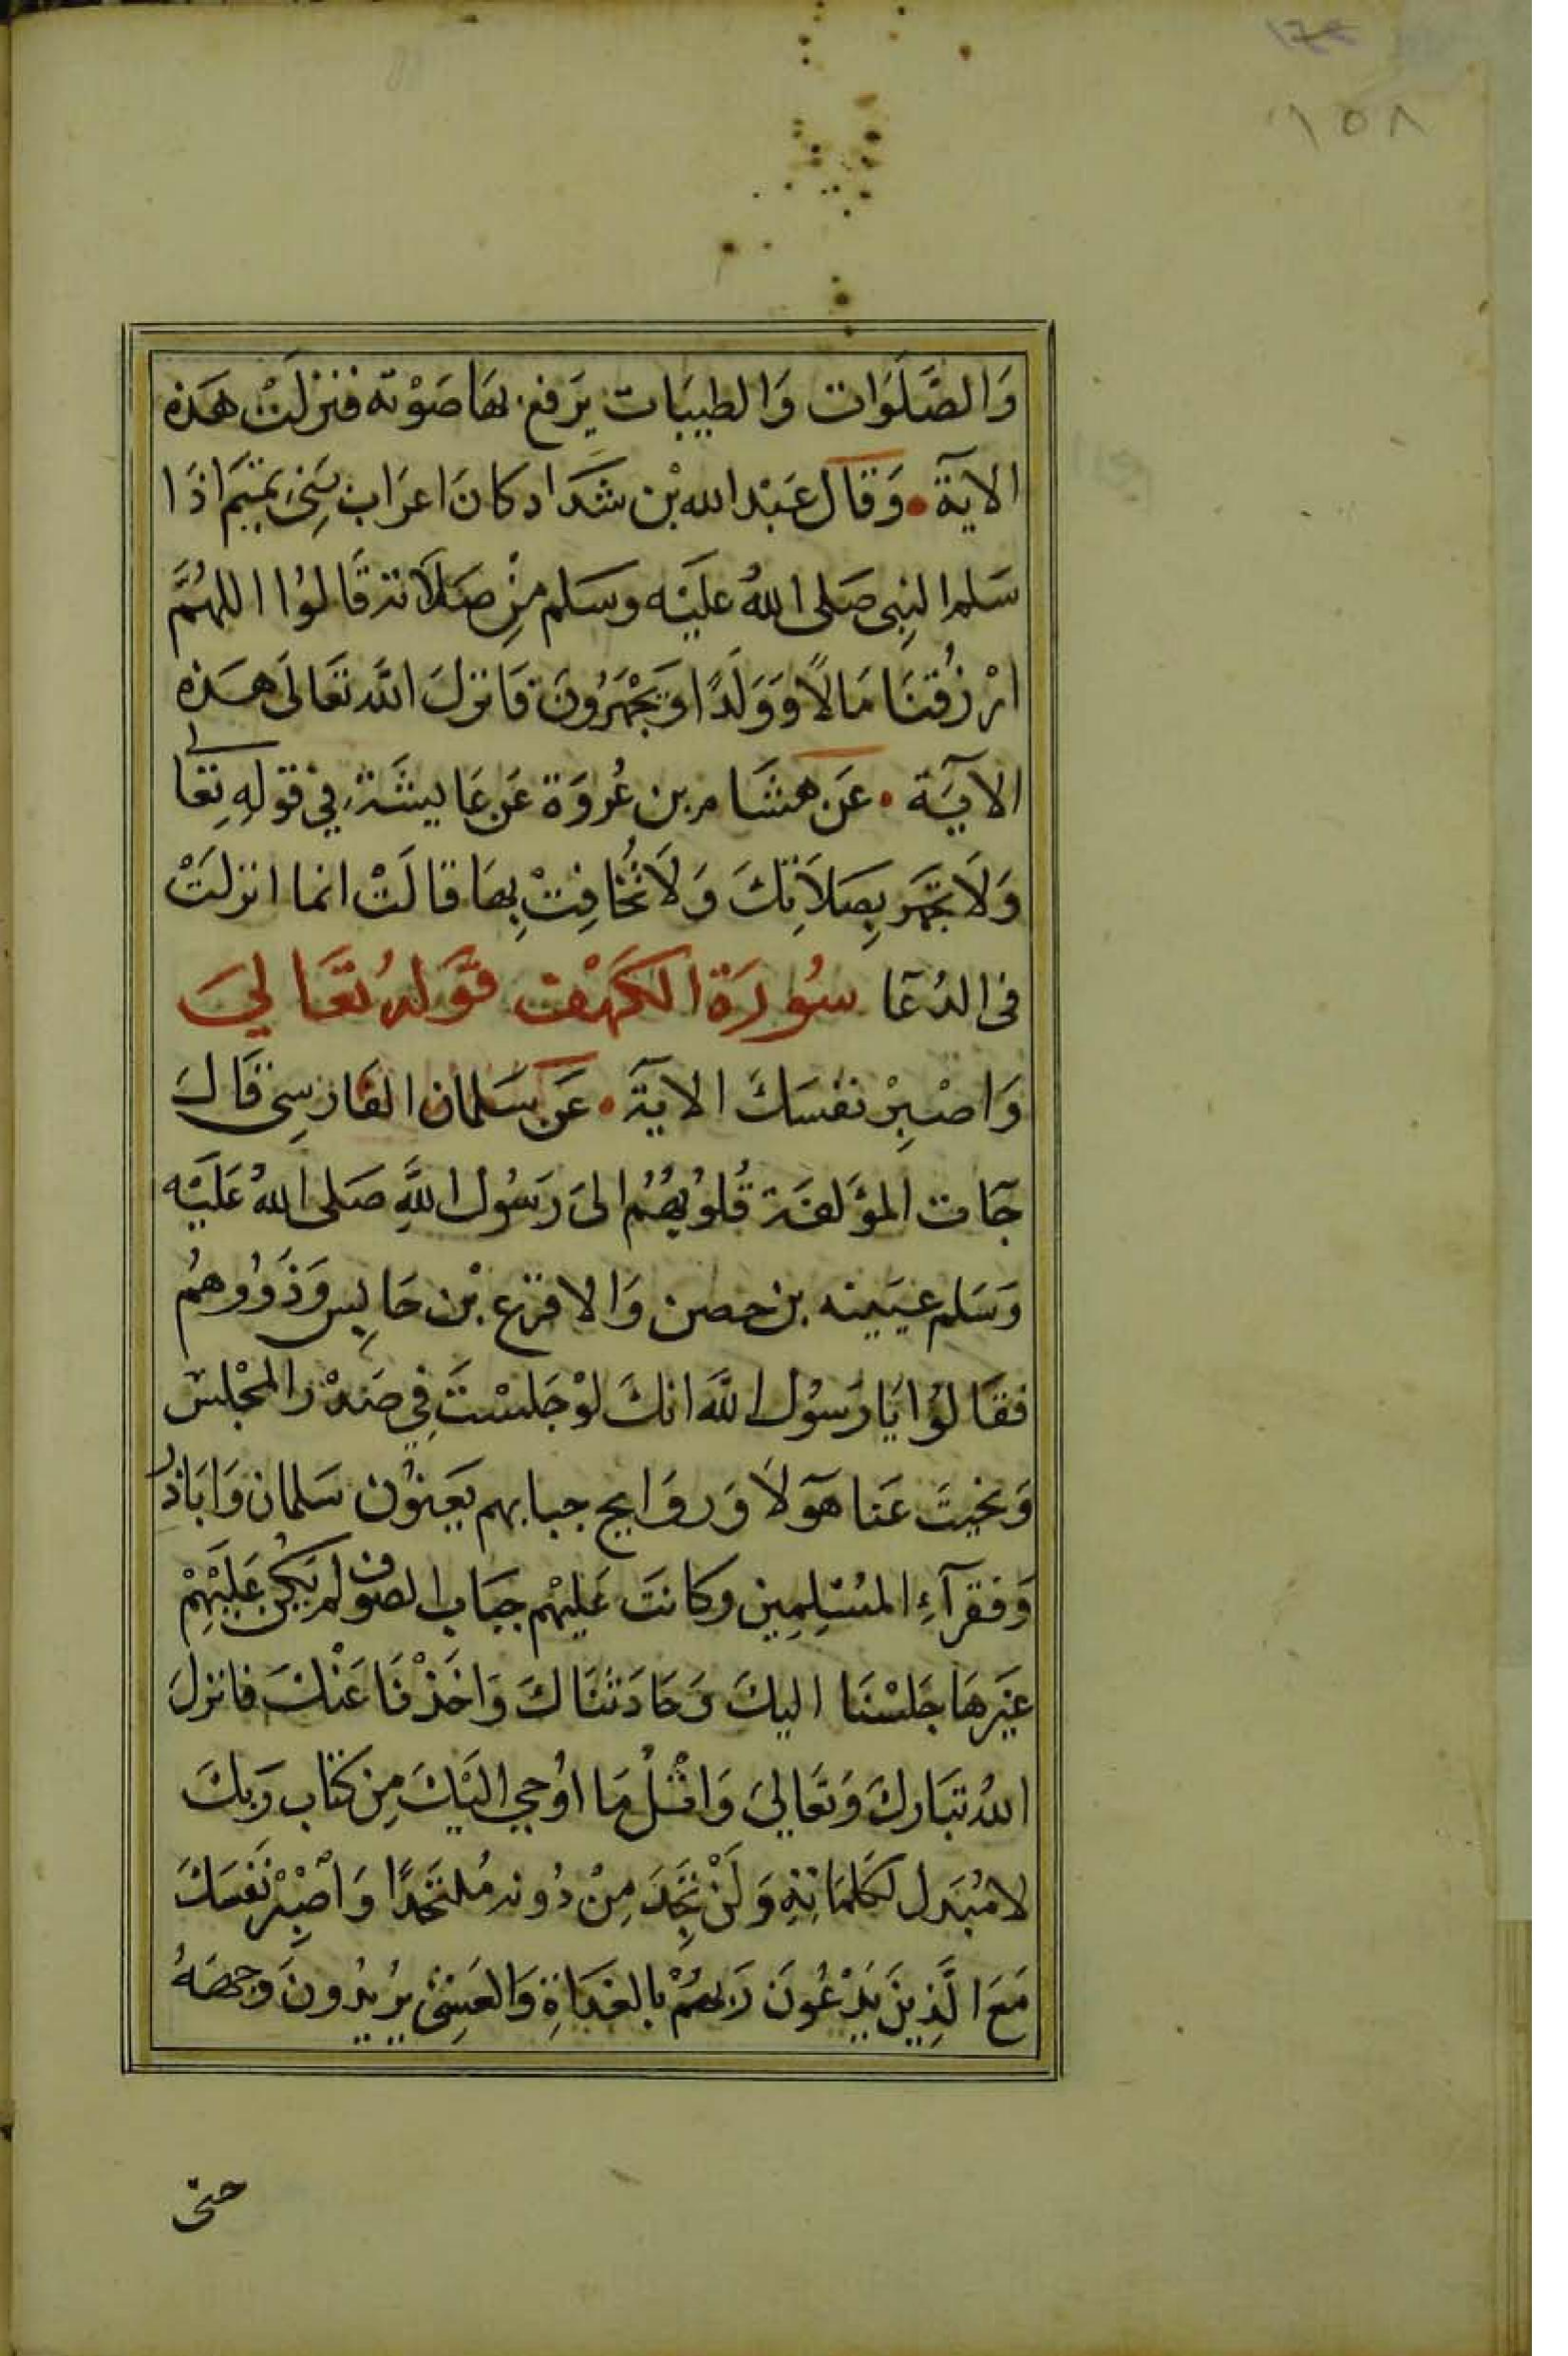 ١٥٨
وَالصَّلَوَات وَالطيبَات يَرفع بهَا صَوْته فنزلَتْ هَذه
الايَة • وَقَال عَبْد الله بْن شدَاد كانَ اعرَاب بَنِى تميم اذَا
سَلم النبِى صَلى اللهُ عليَه وسَلم مِنْ صَلَاته قَالوُا اللهُمَّ
ارْزُقنَا مَالًا وَوَلَدًا وَيجْهَرُونَ فَانزلَ اللَّه تعَالَى هَذه
الآيَة • عَن هشَام بن عُروَة عَن عَايشَة في قولهِ تعَالى
وَلَا تجهَر بِصَلَاتِكَ وَلَا تُخَافِتْ بِهَا قالَتْ انما انزلَتْ
فى الدُعَا سُورَة الكَهْف قَولهُ تعَالىَ
وَاصْبِرْ نفسَكَ الايَة • عَن سَلمان الفَارسِى قَالَ
جَآت المؤَلفَة قُلوُبهُمُ الىَ رَسُول اللَّهِ صَلى اللهُ عَليَه
وَسَلم عيَيينه بن حصن وَالاقرَع بْن حَابِس وَذَوُوهمُ
فقَالوُا يَا رَسُول اللَّه انكَ لوْ جَلسْتَ فِي صَدْر المجْلسَ
وَنحيتَ عَنا هَآولَا وَروَايح جبابهم يَعنوُن سَلمان وَابَاذر
وَفقرآءِ المسُلِمِين وكانتَ عَليْهم جبَاب الصُوف لم يَكُن عَليَهِمْ
غيَرهَا جَلسْنَا اليكَ وَحَادَثنَاكَ وَاخَذْنَا عَنْكَ فانزلَ
اللهُ تبَاركَ وَتعَالىَ وَاتْلُ مَا اوُحِي اليَكَ مِن كتَاب رَبكَ
لا مُبَدل لكَلمَاتِهِ وَلَنْ تجَدَ مِنْ دُونه مُلتحَدًا وَاصْبِرْ نَفسَكَ
مَعَ الَّذِينَ يَدْعُونَ رَبهُمْ بالغدَاةِ وَالعَشِىّ يُريُدُونَ وَجهَهُ
حتى